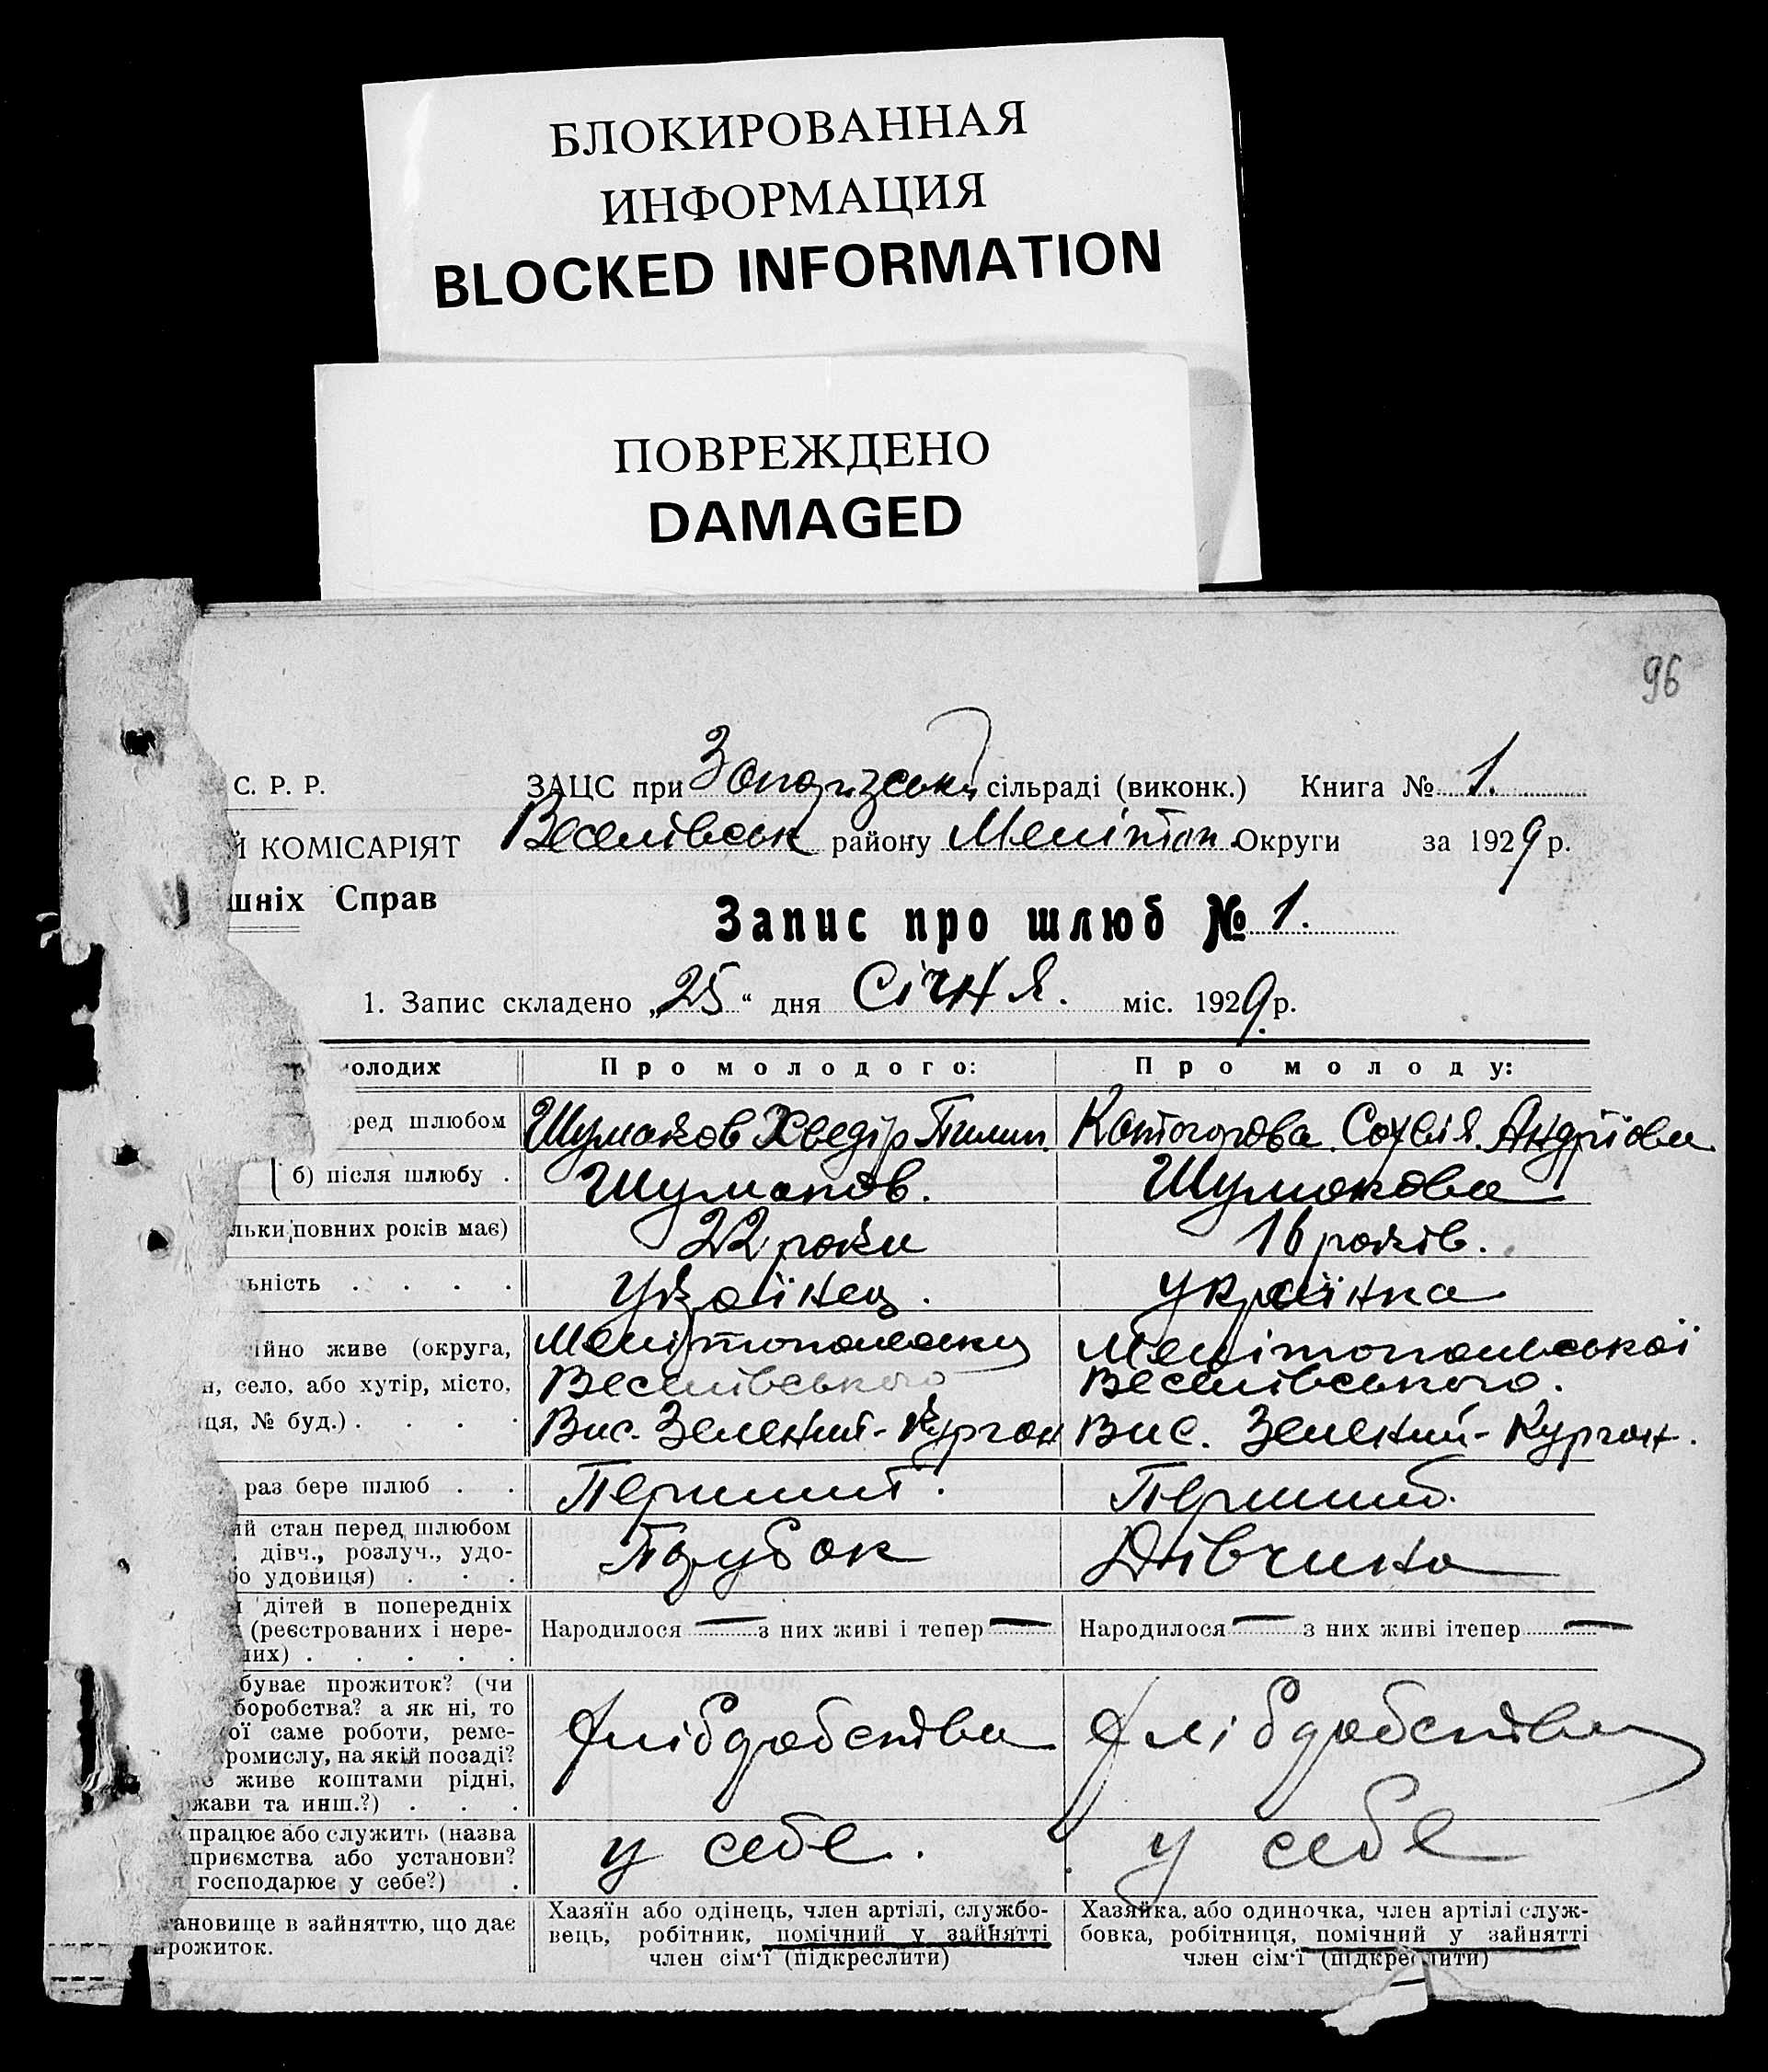 БЛОКИРОВАННАЯ
ИНФОРМАЦИЯ
BLOCKED INFORMATION
ПОВРЕЖДЕНО
DAMAGED
96
С. Р. Р.
ЗАЦС при сільраді (виконк.) Книга № 1.
Й КОМІСАРІЯТ
Веселівськ району Мелітоп. Округи за 1929 р.
шніх Справ
Запис про шлюб № 1.
1. Запис складено „25“ дня Січня. міс. 1929 р.
олодих
Про молодого:
Про молоду:
ред шлюбом
Шумаков Хведір Пилип.
Софія Андріїови
б) після шлюбу .
Шумаков.
Шумакова
льки повних років має)
22 роки
16 років.
ьність . . . .
Українец.
Українка
ійно живе (округа,
н, село, або хутір, місто,
ця, № буд.) . . .
Мелітопольськ
Веселівського
Вис. Зелений-Курган
Мелітопольської
Веселівського.
Вис. Зелений-Курган.
раз бере шлюб . .
Перший.
Перший.
ий стан перед шлюбом
дівч., розлуч., удо-
бо удовиця) . . .
Парубок
Дівчина
дітей в попередніх
(реєстрованих і нере-
них) . . . . .
Народилося — з них живі і тепер —
Народилося — з них живі ітепер —
буває прожиток? (чи
боробства? а як ні, то
ої саме роботи, реме-
ромислу, на якій посаді?
живе коштами рідні,
жави та инш.?) . . .
Хлібробства
Хлібробства
працює або служить (назва
приємства або установи?
господарює у себе?) .
у себе.
у себе
ановище в зайняттю, що дає
прожиток.
Хазяїн або одінець, член артілі, службо-
вець, робітник, помічний у зайнятті
член сім'ї (підкреслити)
Хазяйка, або одиночка, член артілі служ-
бовка, робітниця, помічний у зайнятті
член сім'ї (підкреслити)